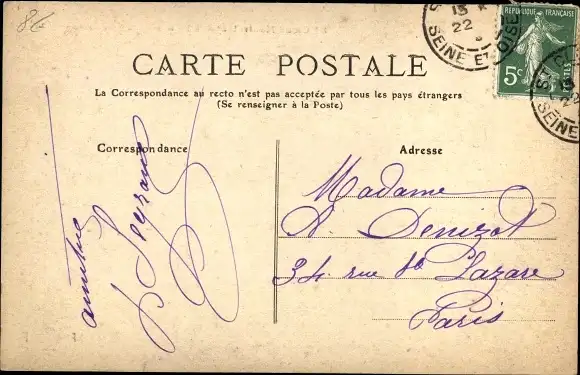 8€
S
13 *
22
SEINE ET OISE
RÉPUBLIQUE FRANÇAISE
5c
POSTES
S
13
22
SEINE
CARTE POSTALE
La Correspondance au recto n'est pas acceptée par tous les pays étrangers
(Se renseigner à la Poste)
Correspondance
Adresse
amitié
Madame
A. Denizot
34 rue St Lazare
Paris